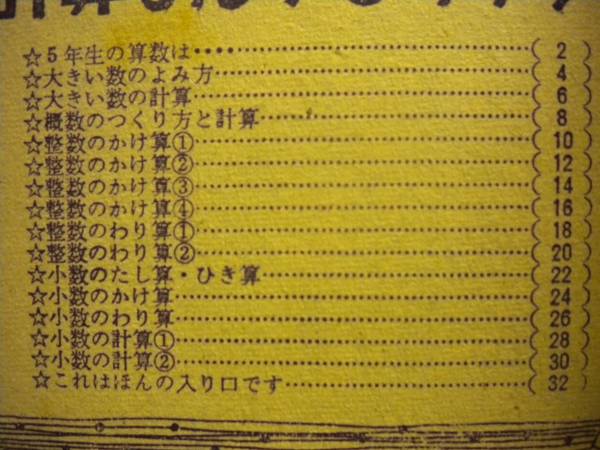 ☆5年生の算数は‥‥(2)
☆大きい数のよみ方‥‥(4)
☆大きい数の計算‥‥(6)
☆概数のつくり方と計算‥‥(8)
☆整数のかけ算①‥‥(10)
☆整数のかけ算②‥‥(12)
☆整数のかけ算③‥‥(14)
☆整数のかけ算④‥‥(16)
☆整数のわり算①‥‥(18)
☆整数のわり算②‥‥(20)
☆小数のたし算・ひき算‥‥(22)
☆小数のかけ算‥‥(24)
☆小数のわり算‥‥(26)
☆小数の計算①‥‥(28)
☆小数の計算②‥‥(30)
☆これはほんの入り口です‥‥(32)